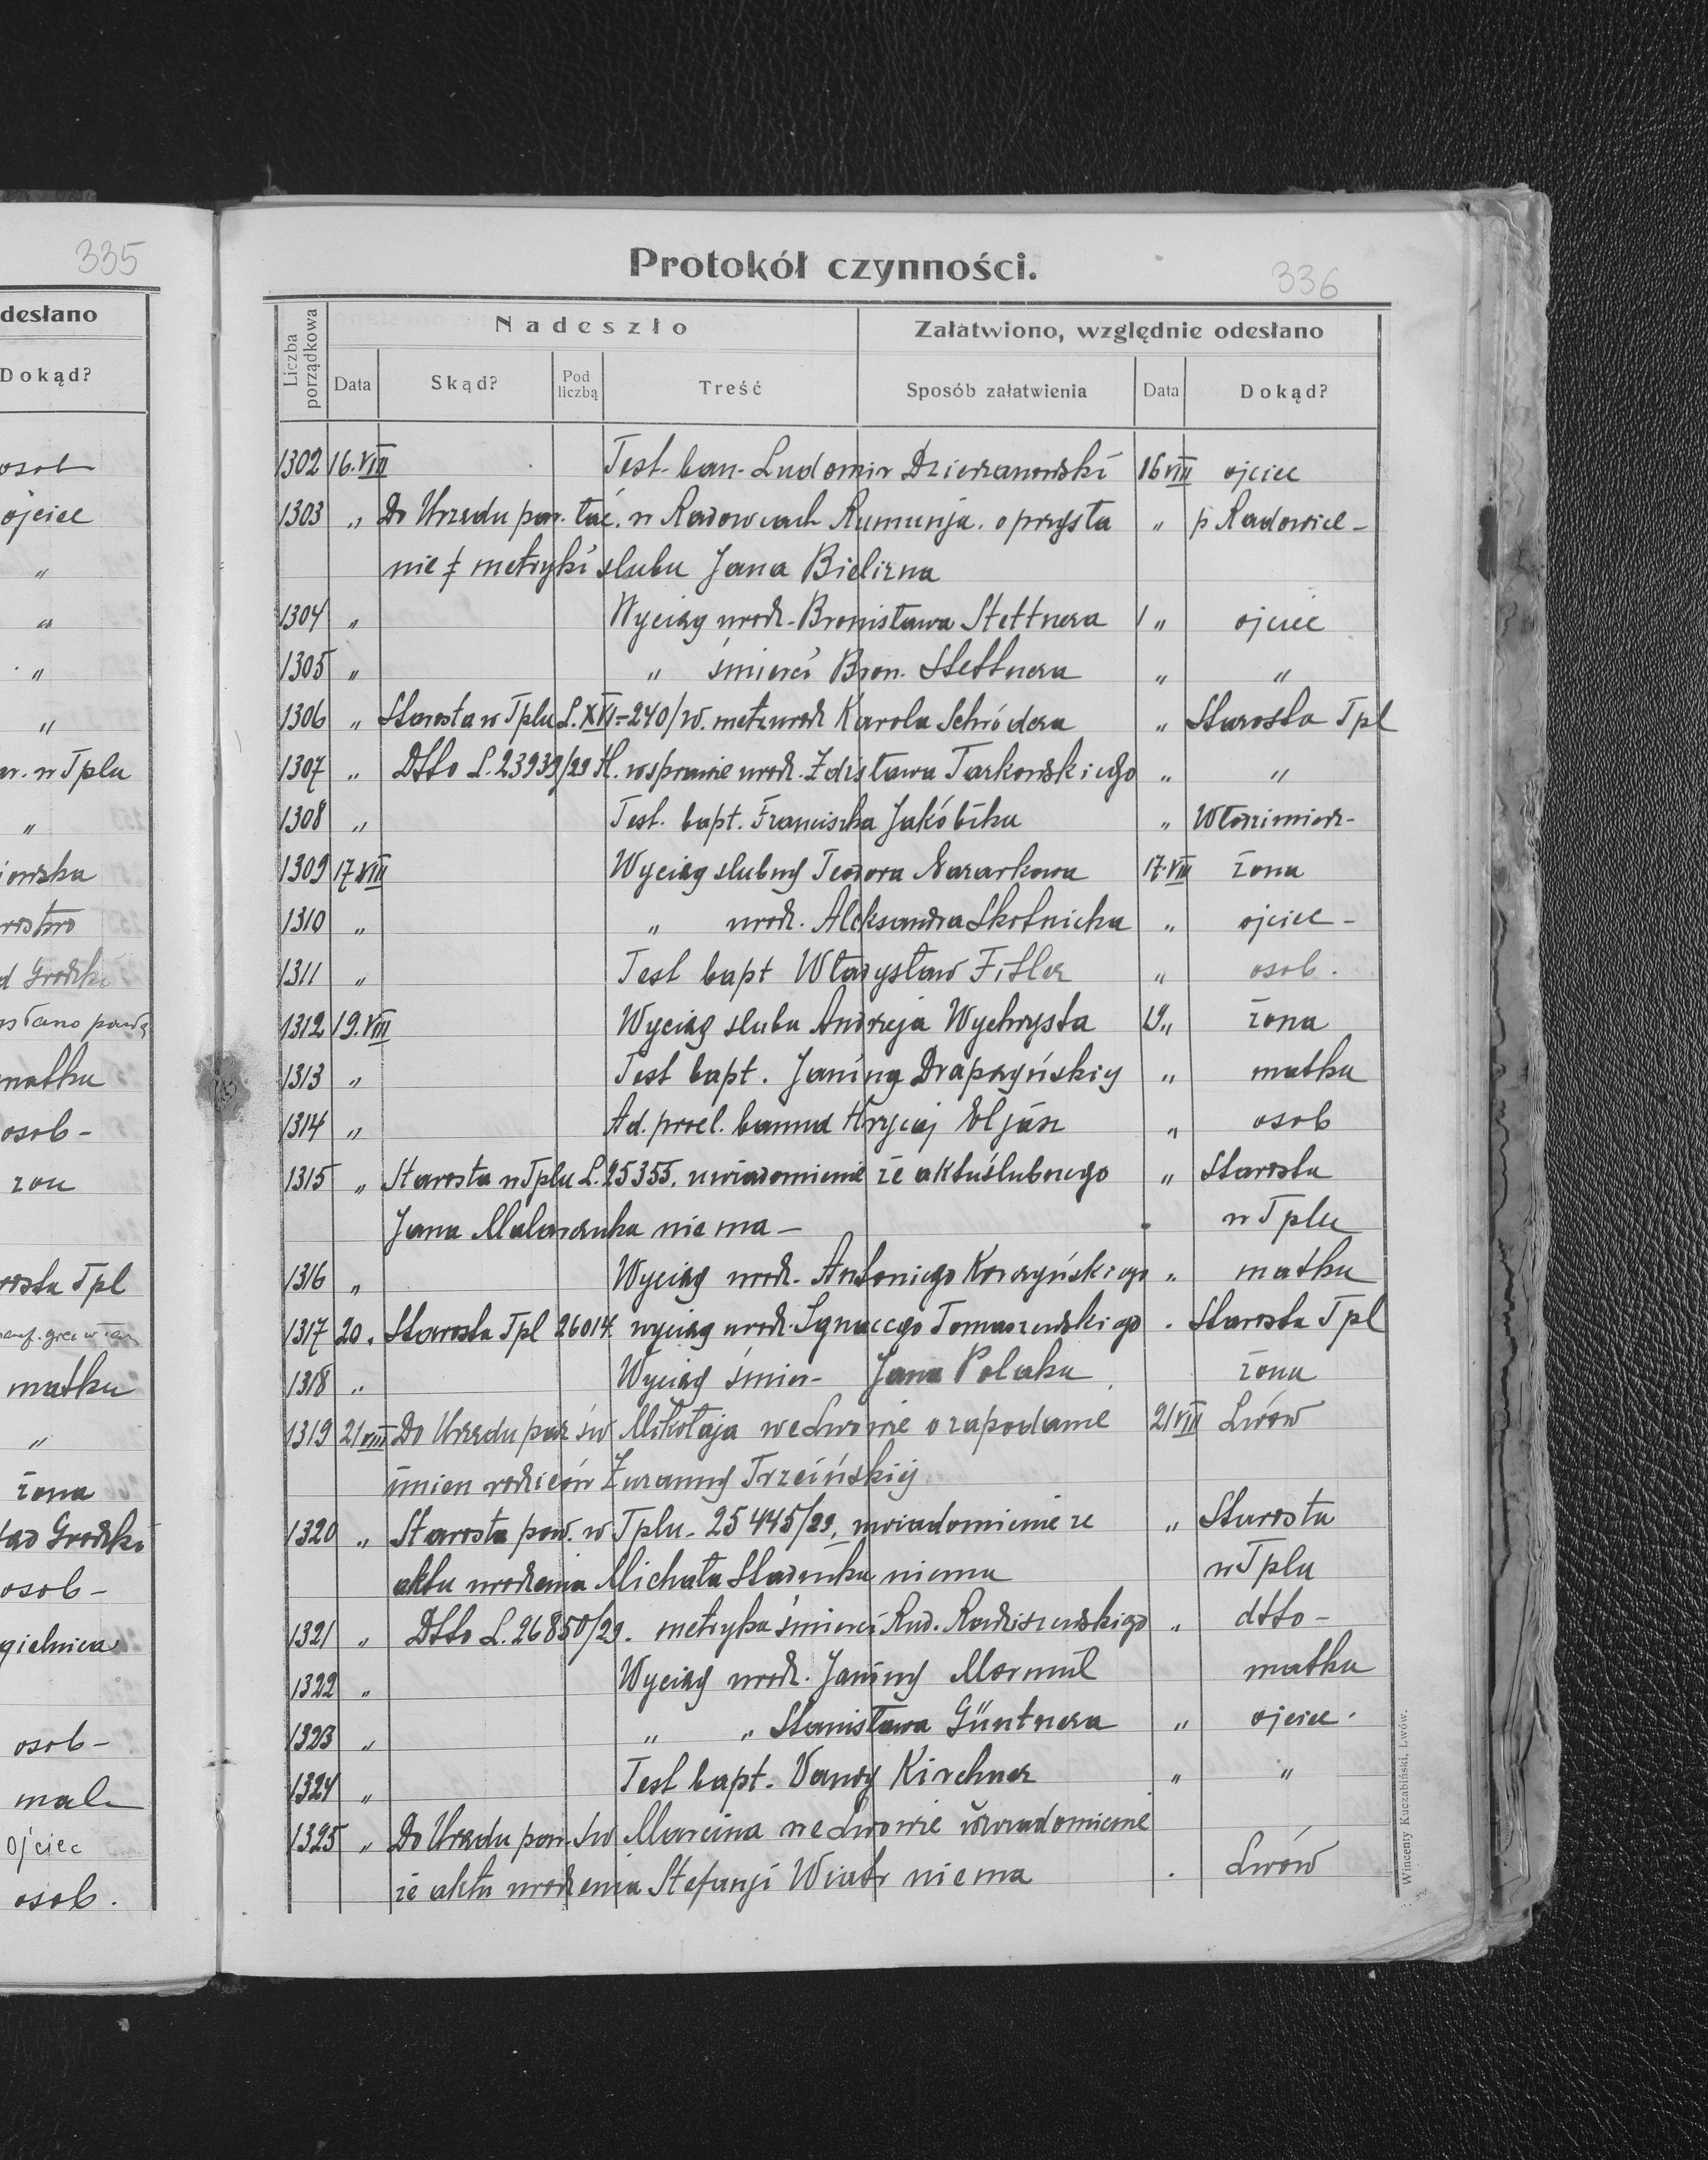 335
desłano
Dokąd?
osob
ojciec
"
"
"
"
w Tplu
"
Grodzki
matka
osob-
Tpl
matka
"
żona
Grodzki
osob-
osob-
Ojciec
osob.
Protokół czynności.
336
Liczba porządkowa
Nadeszło
Załatwiono, względnie odesłano
Data
Skąd?
Pod liczbą
Treść
Sposób załatwienia
Data
Dokąd?
1302 16.VIII Test. ban. Ludomir Dzierzanowski 16 VIII ojciec
1303 " Do Urzędu par. łać. w Radowcach Rumunja. o przysła " p Radowice-
nie metryki slubu Jana Bielizna
1304 " Wyciąg urodz. Bronisława Stettnera " ojciec
1305 " " śmierci Bron. Stettnera " "
1306 " Starosta w Tplu L.XVI-240/w. metr urodz Karola Schrödera " Starosta Tpl
1307 " Dtto L.23939/29 H. w sprawie urodz. Zdzisława Tarkowskiego " "
1308 " Test. bapt. Franciszka Jakóbika " Włodzimierz-
1309 17 VIII Wyciąg slubny Teodora Nazarkowa 17.VIII żona
1310 " " urodz. Aleksandra Skotnicka " ojciec-
1311 " Test bapt Władysław Fitler " osob.
1312 19.VIII Wyciąg slubu Andrzeja Wychrysta 19 " żona
1313 " Test bapt. Janiny Drapczyńskiy " matka
1314 " Ad. procl. banna Hryciaj Eljasz " osob
1315 " Starosta w Tplu L.25355. uwiadomienie że aktu ślubnego " Starosta
Jana Malaranka niema - w Tplu
1316 " Wyciąg urodz. Antoniego Korczyńskiego " matka
1317 20. Starosta Tpl 26014. wyciąg urodz. Ignacego Tomaszewskiego . Starosta Tpl
1318 " Wyciąg śmier- Jana Polaka żona
1319 21 VIII Do Urzędu par św Mikołaja we Lwowie o zapodanie 21 VIII Lwów
imien rodziców Zuzanny Trzcińskiy
1320 " Starosta pow. w Tplu. 25445/29, uwiadomienie ze " Starosta
aktu urodzenia Michała niema w Tplu
1321 " Dtto L.26850/29. metryka śmierci Rud. Radziszewskiego " dtto-
1322 " Wyciąg urodz. Janiny Mormul matka
1323 " " " Stanisława Güntnera " ojciec.
1324 " Test bapt. Vandy Kirchner " "
1325 " Do Urzędu par. św Marcina we Lwowie uwiadomienie
że aktu urodzenia Stefanji Wiatr niema . Lwów
Wincenty Kuczabiński, Lwów.